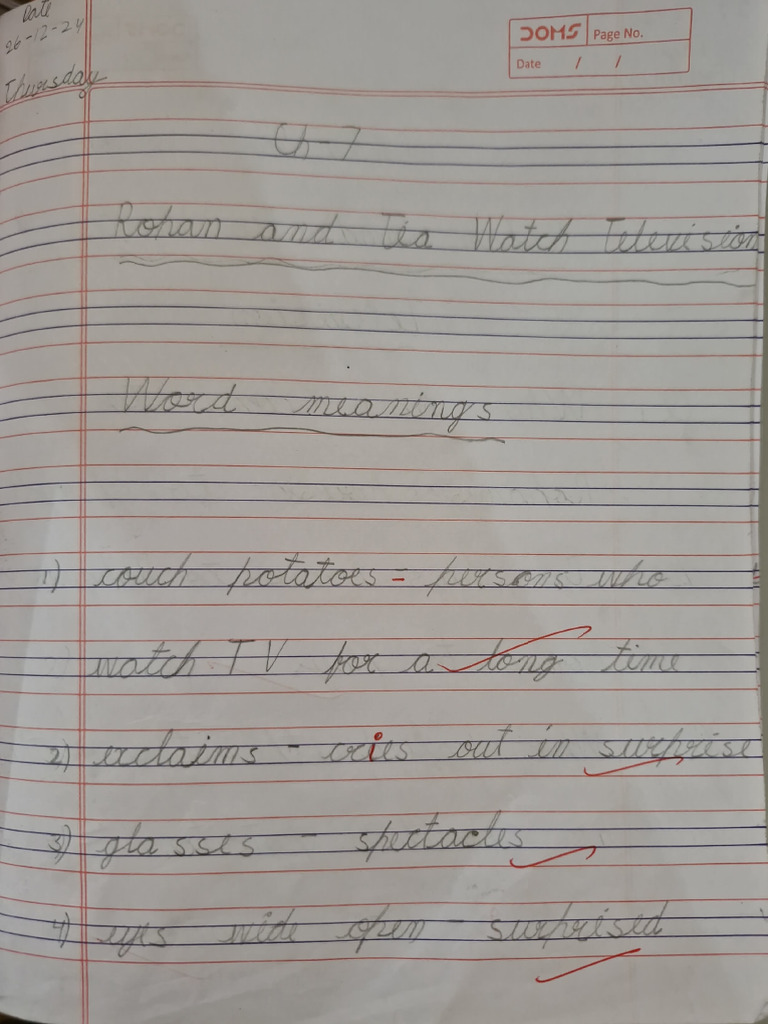 Date
26-12-24
Thursday
DOMS Page No.
Date / /
Ch-7
Rohan and Tia Watch Television
Word meanings
1) couch potatoes = persons who
watch TV for a long time
2) exclaims - cries out in surprise
3) glasses - spectacles
4) eyes wide open - surprised